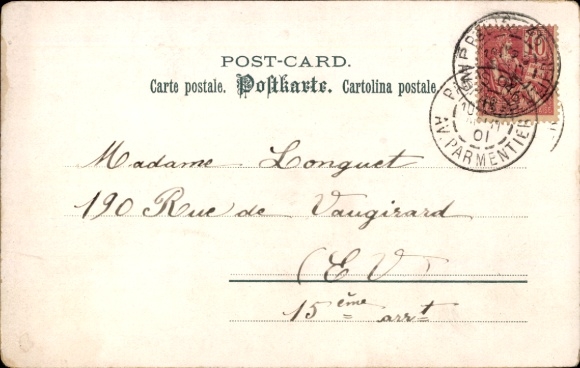 POST-CARD.
Carte postale. Postkarte. Cartolina postale.
10
AV. PARMENTIER
01
Madame Longuet
190 Rue de Vaugirard
(E V)
15ème arrt